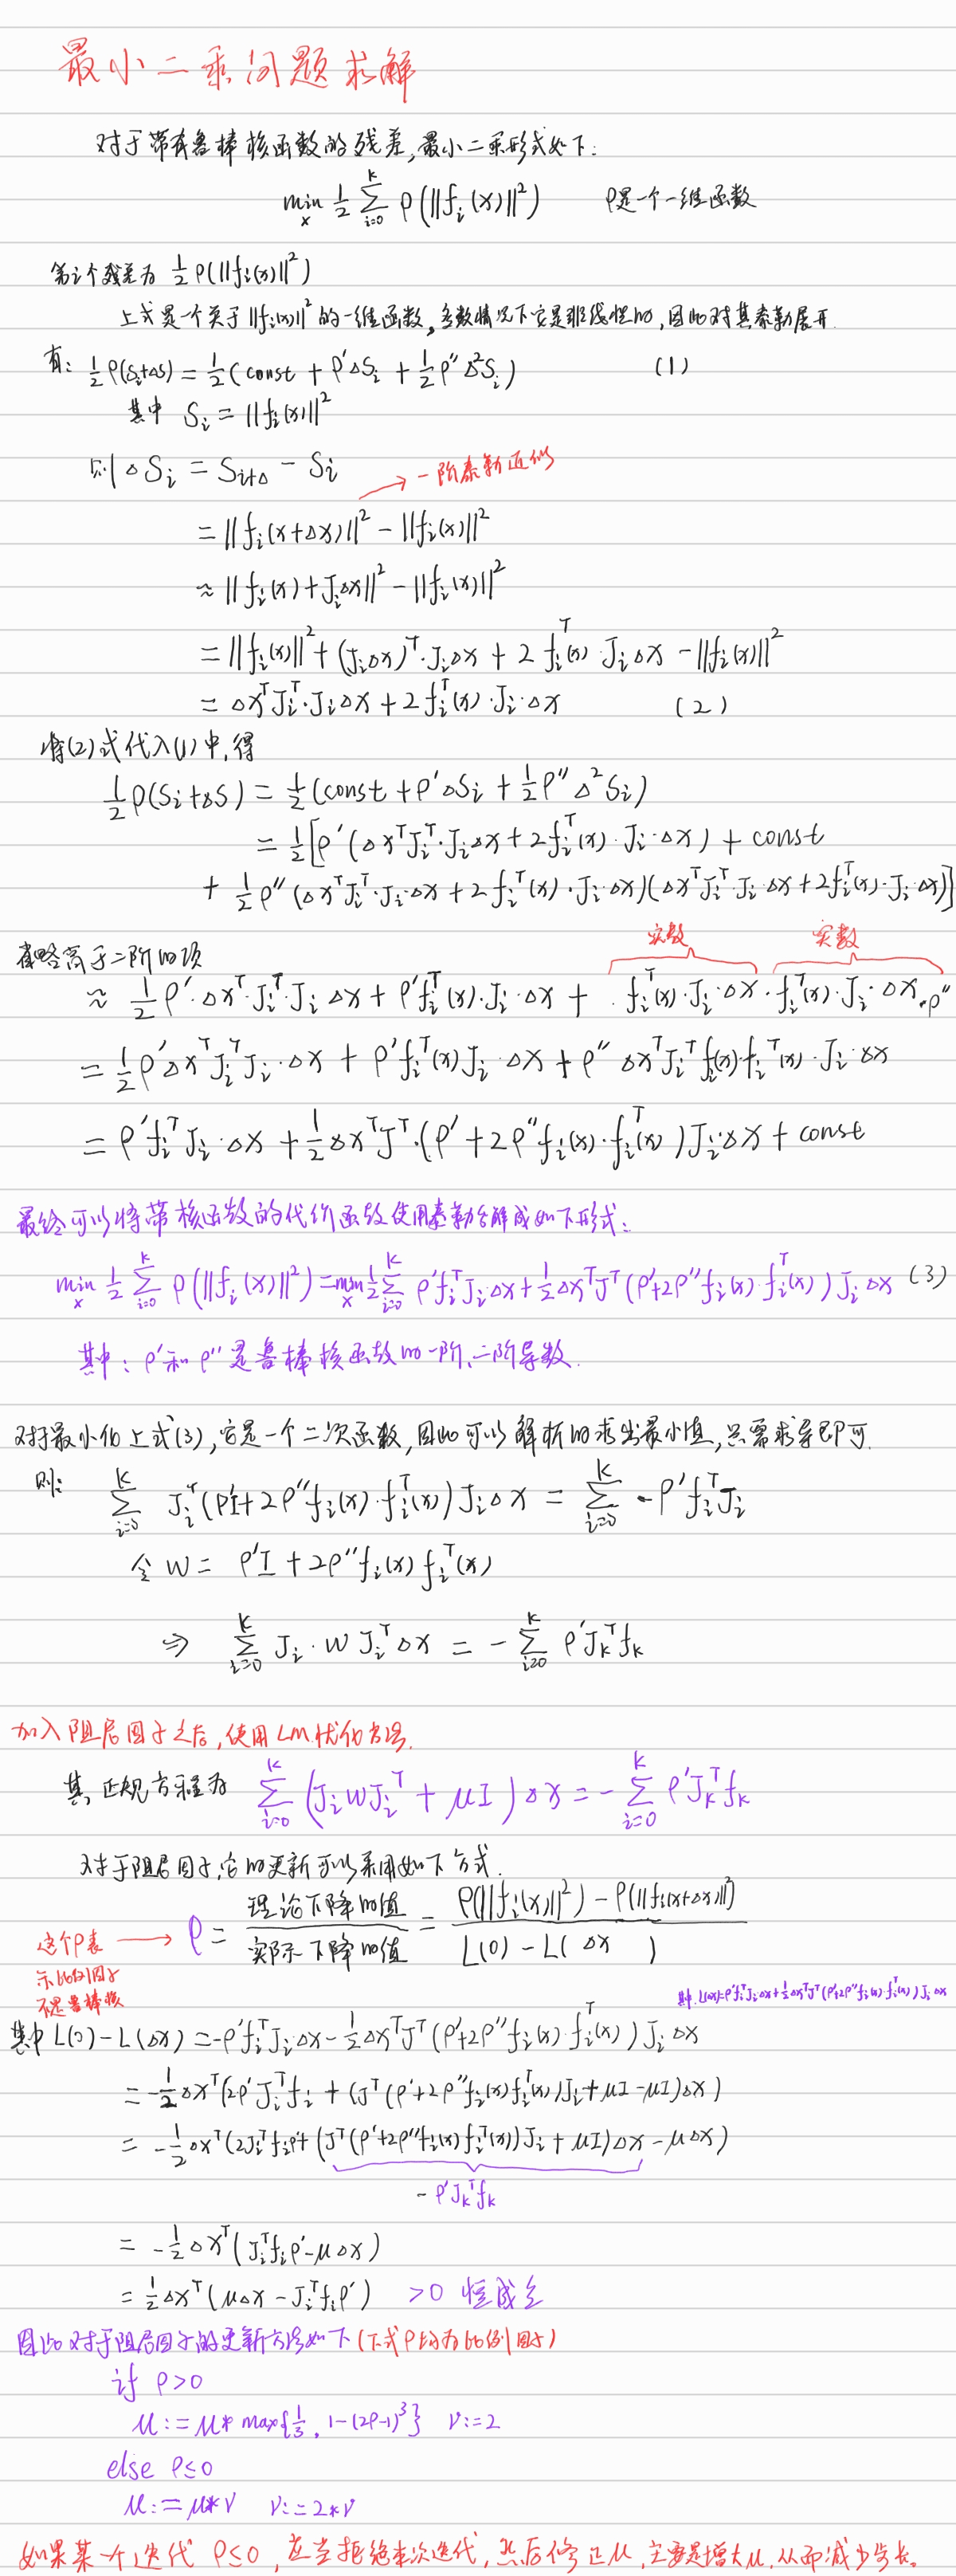 最小二乘问题求解
对于带有鲁棒核函数的残差,最小二乘形式如下:
min_x 1/2 Σ_{i=0}^{k} ρ(||f_i(x)||²)  ρ是一个一维函数
第i个残差为 1/2 ρ(||f_i(x)||²)
上式是一个关于||f_i(x)||²的一维函数,多数情况下它是非线性的,因此对其泰勒展开.
有: 1/2 ρ(S_i+ΔS) = 1/2 (const + ρ'ΔS_i + 1/2 ρ''Δ²S_i)  (1)
其中 S_i = ||f_i(x)||²
则ΔS_i = S_{i+Δ} - S_i
→一阶泰勒近似
= ||f_i(x+Δx)||² - ||f_i(x)||²
≈ ||f_i(x) + J_iΔx||² - ||f_i(x)||²
= ||f_i(x)||² + (J_iΔx)^T·J_iΔx + 2 f_i^T(x)·J_iΔx - ||f_i(x)||²
= Δx^T J_i^T·J_iΔx + 2f_i^T(x)·J_i·Δx  (2)
将(2)式代入(1)中,得
1/2 ρ(S_i+ΔS) = 1/2 (const + ρ'ΔS_i + 1/2 ρ''Δ²S_i)
= 1/2 [ρ'(Δx^T J_i^T·J_iΔx + 2f_i^T(x)·J_i·Δx) + const
+ 1/2 ρ''(Δx^T J_i^T·J_i·Δx + 2f_i^T(x)·J_i·Δx)(Δx^T J_i^T·J_i·Δx + 2f_i^T(x)·J_i·Δx)]
省略高于二阶的项
实数 实数
≈ 1/2 ρ'·Δx^T·J_i^T·J_i Δx + ρ'f_i^T(x)·J_i·Δx + ·f_i^T(x)·J_i·Δx·f_i^T(x)·J_i·Δx·ρ''
= 1/2 ρ'Δx^T J_i^T J_i·Δx + ρ'f_i^T(x)J_i·Δx + ρ''Δx^T J_i^T f_i(x)·f_i^T(x)·J_i·Δx
= ρ'f_i^T J_i·Δx + 1/2 Δx^T J^T·(ρ' + 2ρ''f_i(x)·f_i^T(x))J_iΔx + const
最终可以将带核函数的代价函数使用泰勒分解成如下形式:
min_x 1/2 Σ_{i=0}^{k} ρ(||f_i(x)||²) = min_x 1/2 Σ_{i=0}^{k} ρ'f_i^T J_iΔx + 1/2 Δx^T J^T(ρ'+2ρ''f_i(x)·f_i^T(x))J_iΔx (3)
其中: ρ'和ρ''是鲁棒核函数的一阶、二阶导数.
对于最小化上式(3),它是一个二次函数,因此可以解析的求出最小值,只需求导即可.
则: Σ_{i=0}^{k} J_i^T(ρ'I+2ρ''f_i(x)·f_i^T(x))J_iΔx = Σ_{i=0}^{k} -ρ'f_i^T J_i
令 W = ρ'I + 2ρ''f_i(x)f_i^T(x)
⇒ Σ_{i=0}^{k} J_i·W J_i^T Δx = -Σ_{i=0}^{k} ρ'J_k^T f_k
加入阻尼因子之后,使用LM优化方法.
其正规方程为 Σ_{i=0}^{k} (J_i W J_i^T + μI)Δx = -Σ_{i=0}^{k} ρ'J_k^T f_k
对于阻尼因子,它的更新可以采用如下方式.
ρ = 理论下降的值/实际下降的值 = (ρ(||f_i(x)||²) - ρ(||f_i(x+Δx)||²))/(L(0) - L(Δx))
这个ρ表 →
示比例因子
不是鲁棒核
其中.L(Δx)=ρ'f_i^T J_iΔx+1/2Δx^T J^T(ρ'+2ρ''f_i(x)·f_i^T(x))J_iΔx
其中L(0) - L(Δx) = -ρ'f_i^T J_iΔx - 1/2 Δx^T J^T(ρ'+2ρ''f_i(x)·f_i^T(x))J_iΔx
= -1/2 Δx^T(2ρ'J_i^T f_i + (J^T(ρ'+2ρ''f_i(x)f_i^T(x))J_i+μI-μI)Δx)
= -1/2 Δx^T(2J_i^T f_iρ'+(J^T(ρ'+2ρ''f_i(x)f_i^T(x))J_i+μI)Δx - μΔx)
-ρ'J_k^T f_k
= -1/2 Δx^T(J_i^T f_iρ'-μΔx)
= 1/2 Δx^T(μΔx - J_i^T f_iρ')  >0 恒成立
因此对于阻尼因子的更新方法如下(下式ρ均为比例因子)
if ρ>0
μ:=μ*max{1/3, 1-(2ρ-1)³}  ν:=2
else ρ≤0
μ:=μ*ν  ν:=2*ν
如果某一个迭代 ρ≤0,应当拒绝本次迭代,然后修正μ,主要是增大μ,从而减少步长.